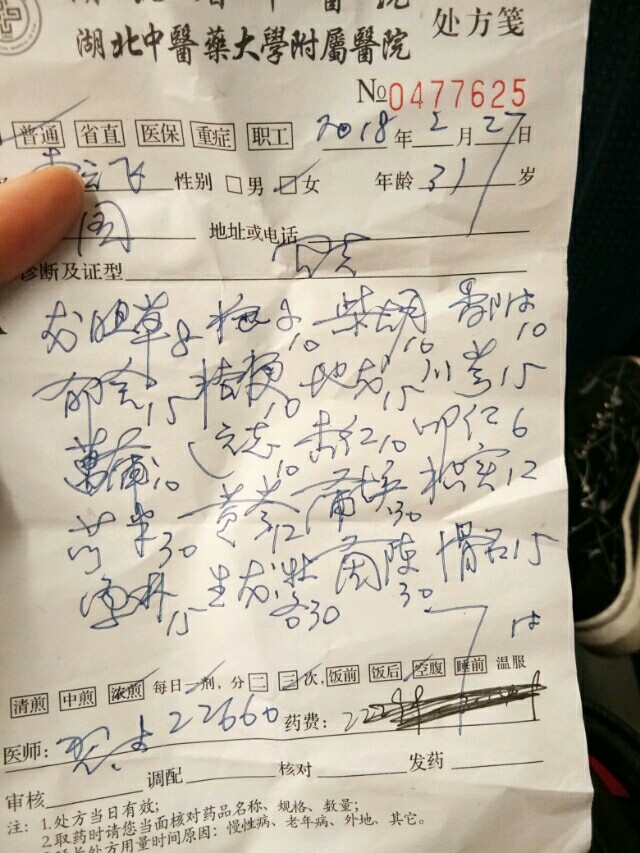 湖北中醫藥大學附屬醫院 处方笺
№0477625
普通 省直 医保 重症 职工 2018年2月27日
云飞 性别 □男 □女 年龄 31岁
地址或电话
诊断及证型
龙胆草8 栀子10 柴胡10
郁金15 桔梗10 地龙15 川芎15
菖蒲10 远志10 杏仁10 6
30 黄芩12 30 枳实12
15 生龙牡各30 茵陈30 滑石15
清煎 中煎 浓煎 每日一剂,分二 三次,饭前 饭后 空腹 睡前 温服
医师: 22660 药费:
审核 调配 核对 发药
注: 1.处方当日有效;
2.取药时请您当面核对药品名称、规格、数量;
处方用量时间原因: 慢性病、老年病、外地、其它。